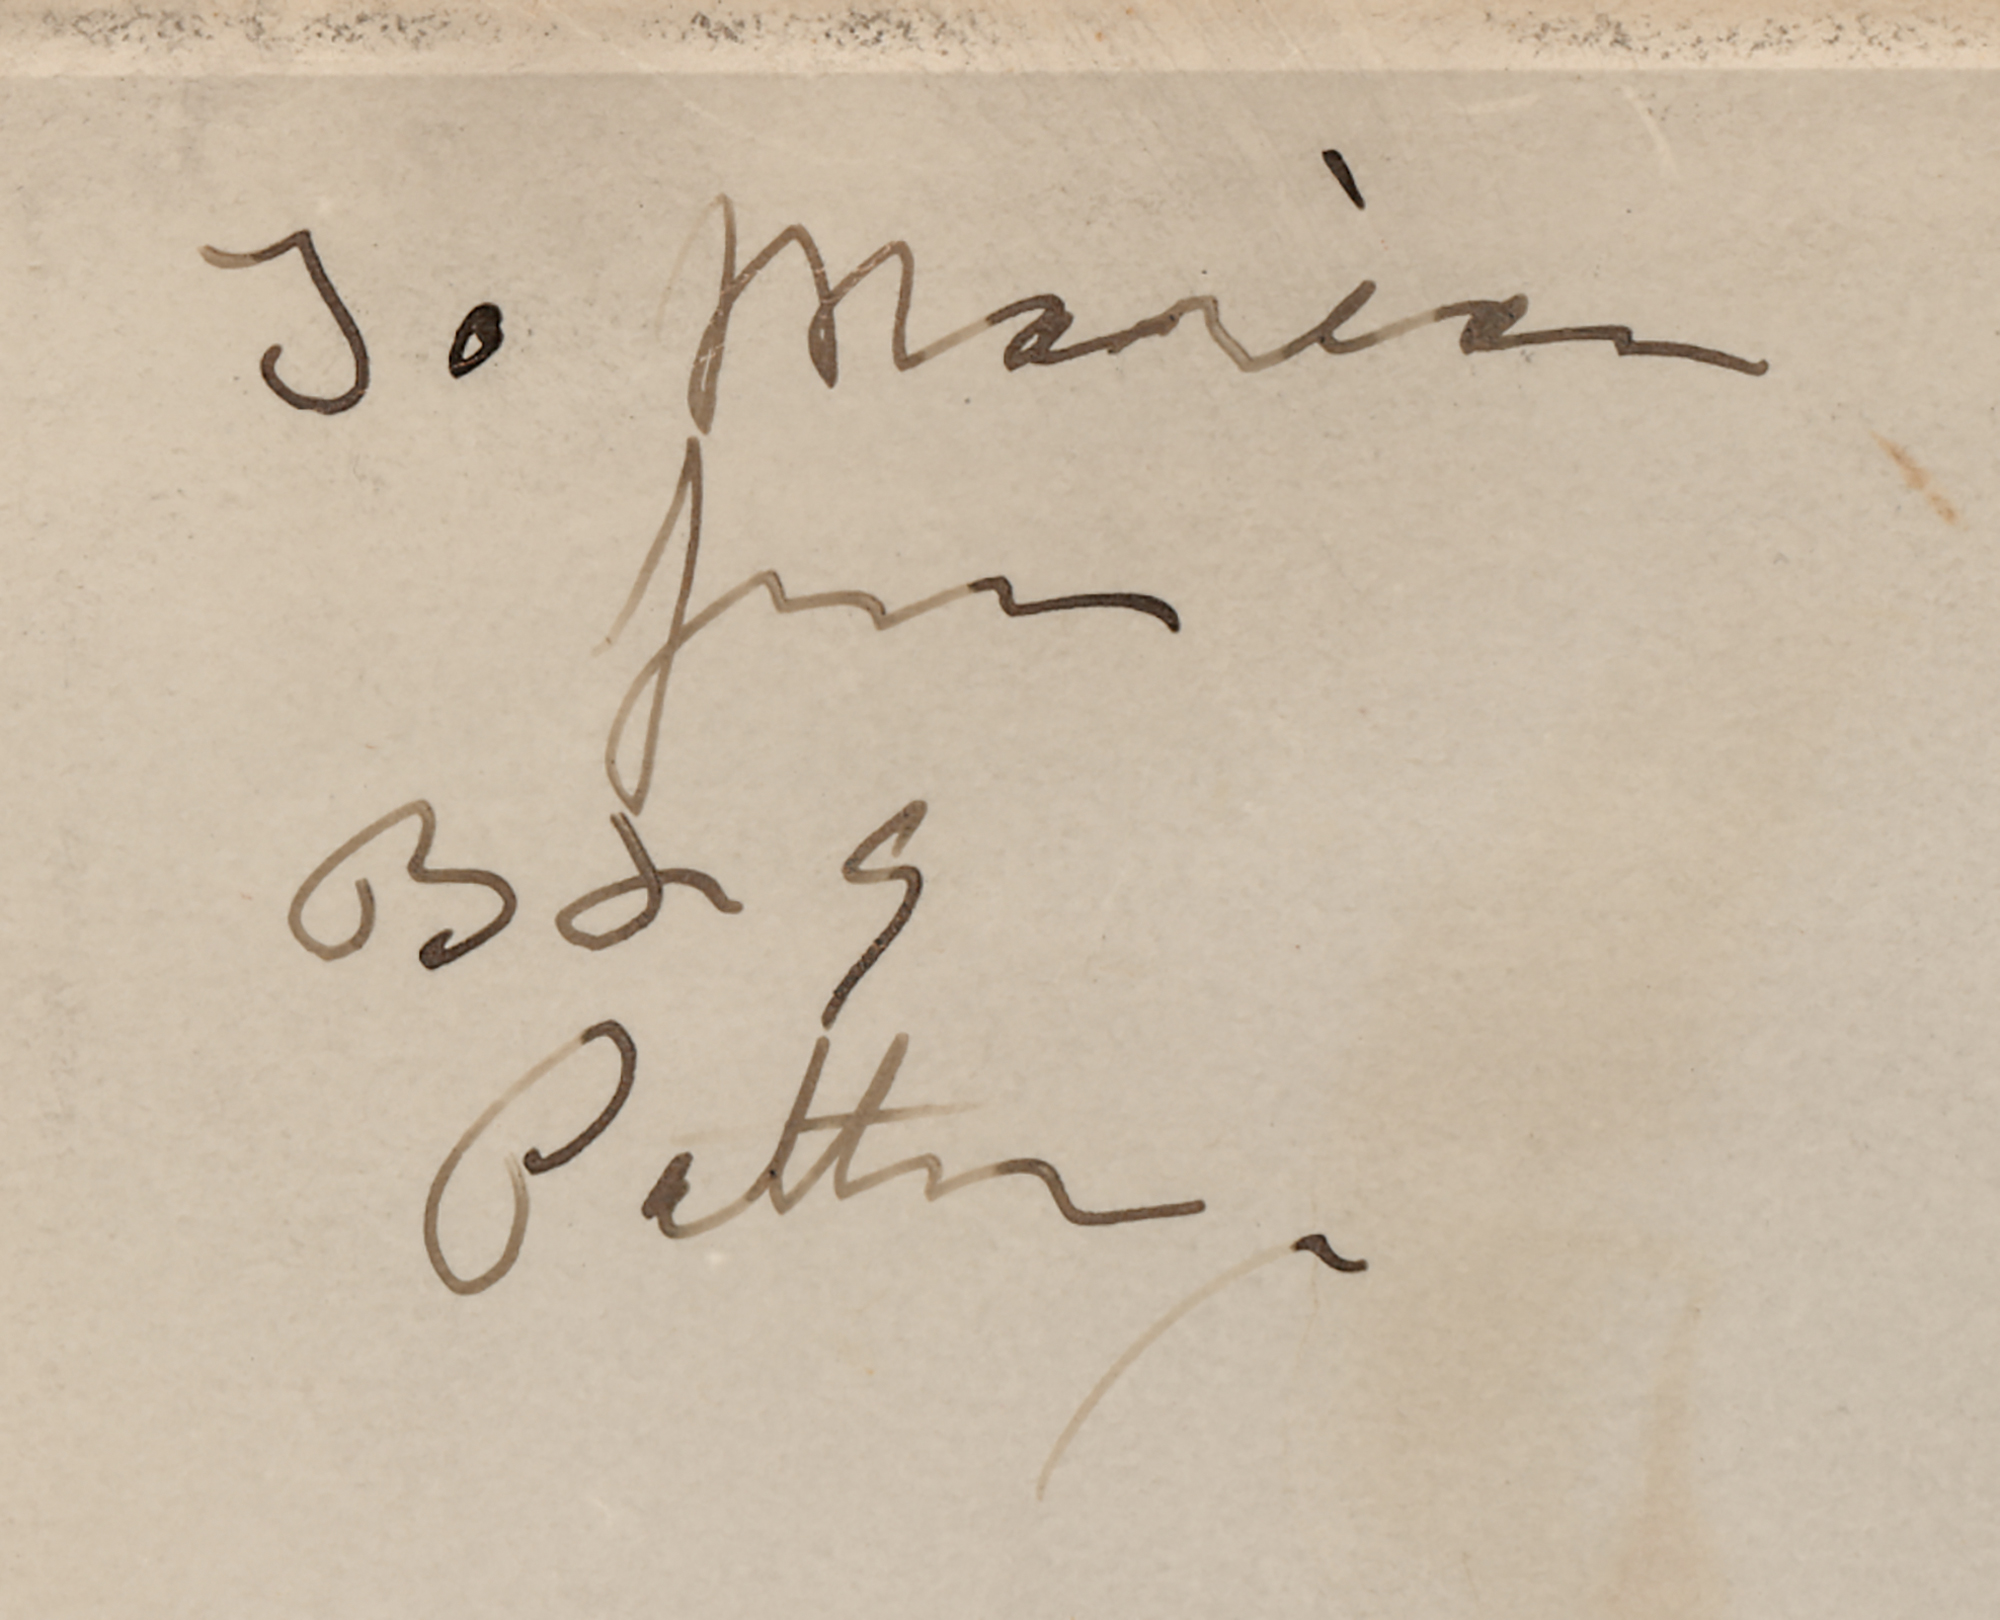 To Marian
from
B & G
Patton